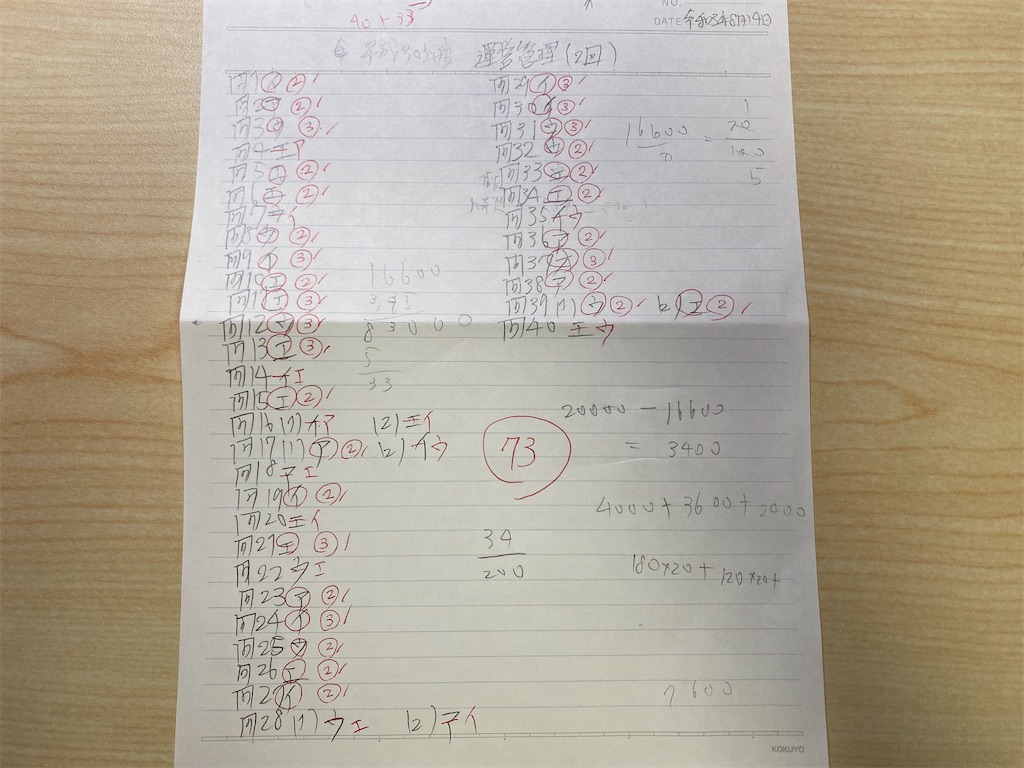 40 + 33
NO.
DATE 令和3年8月14日
運営管理(2回)
問1 ②
問2 ②
問3 ③
問4 エ ア
問5 エ ②
問6 エ ②
問7 ア イ
問8 ウ ②
問9 イ ③
問10 エ ②
問11 エ ③
問12 ウ ③
問13 エ ③
問14 イ エ
問15 エ ②
問16 (1) イ ア (2) エ イ
問17 (1) ア ② (2) イ ウ
問18 ア エ
問19 イ ②
問20 エ イ
問21 エ ③
問22 ウ エ
問23 ア ②
問24 イ ③
問25 ウ ②
問26 エ ②
問27 イ ②
問28 (1) ウ エ (2) ア イ
問29 イ ③
問30 イ ③
問31 ウ ③
問32 ウ ②
問33 エ ②
問34 エ ②
問35 イ ウ
問36 ア ②
問37 ③
問38 ア ②
問39 (1) ウ ② (2) エ ②
問40 エ ウ
16600
83000
5
33
73
34
200
1
16600 = 20
100
5
20000 - 16600
= 3400
4000 + 3600 + 2000
180×20 + 120×20+
7600
KOKUYO